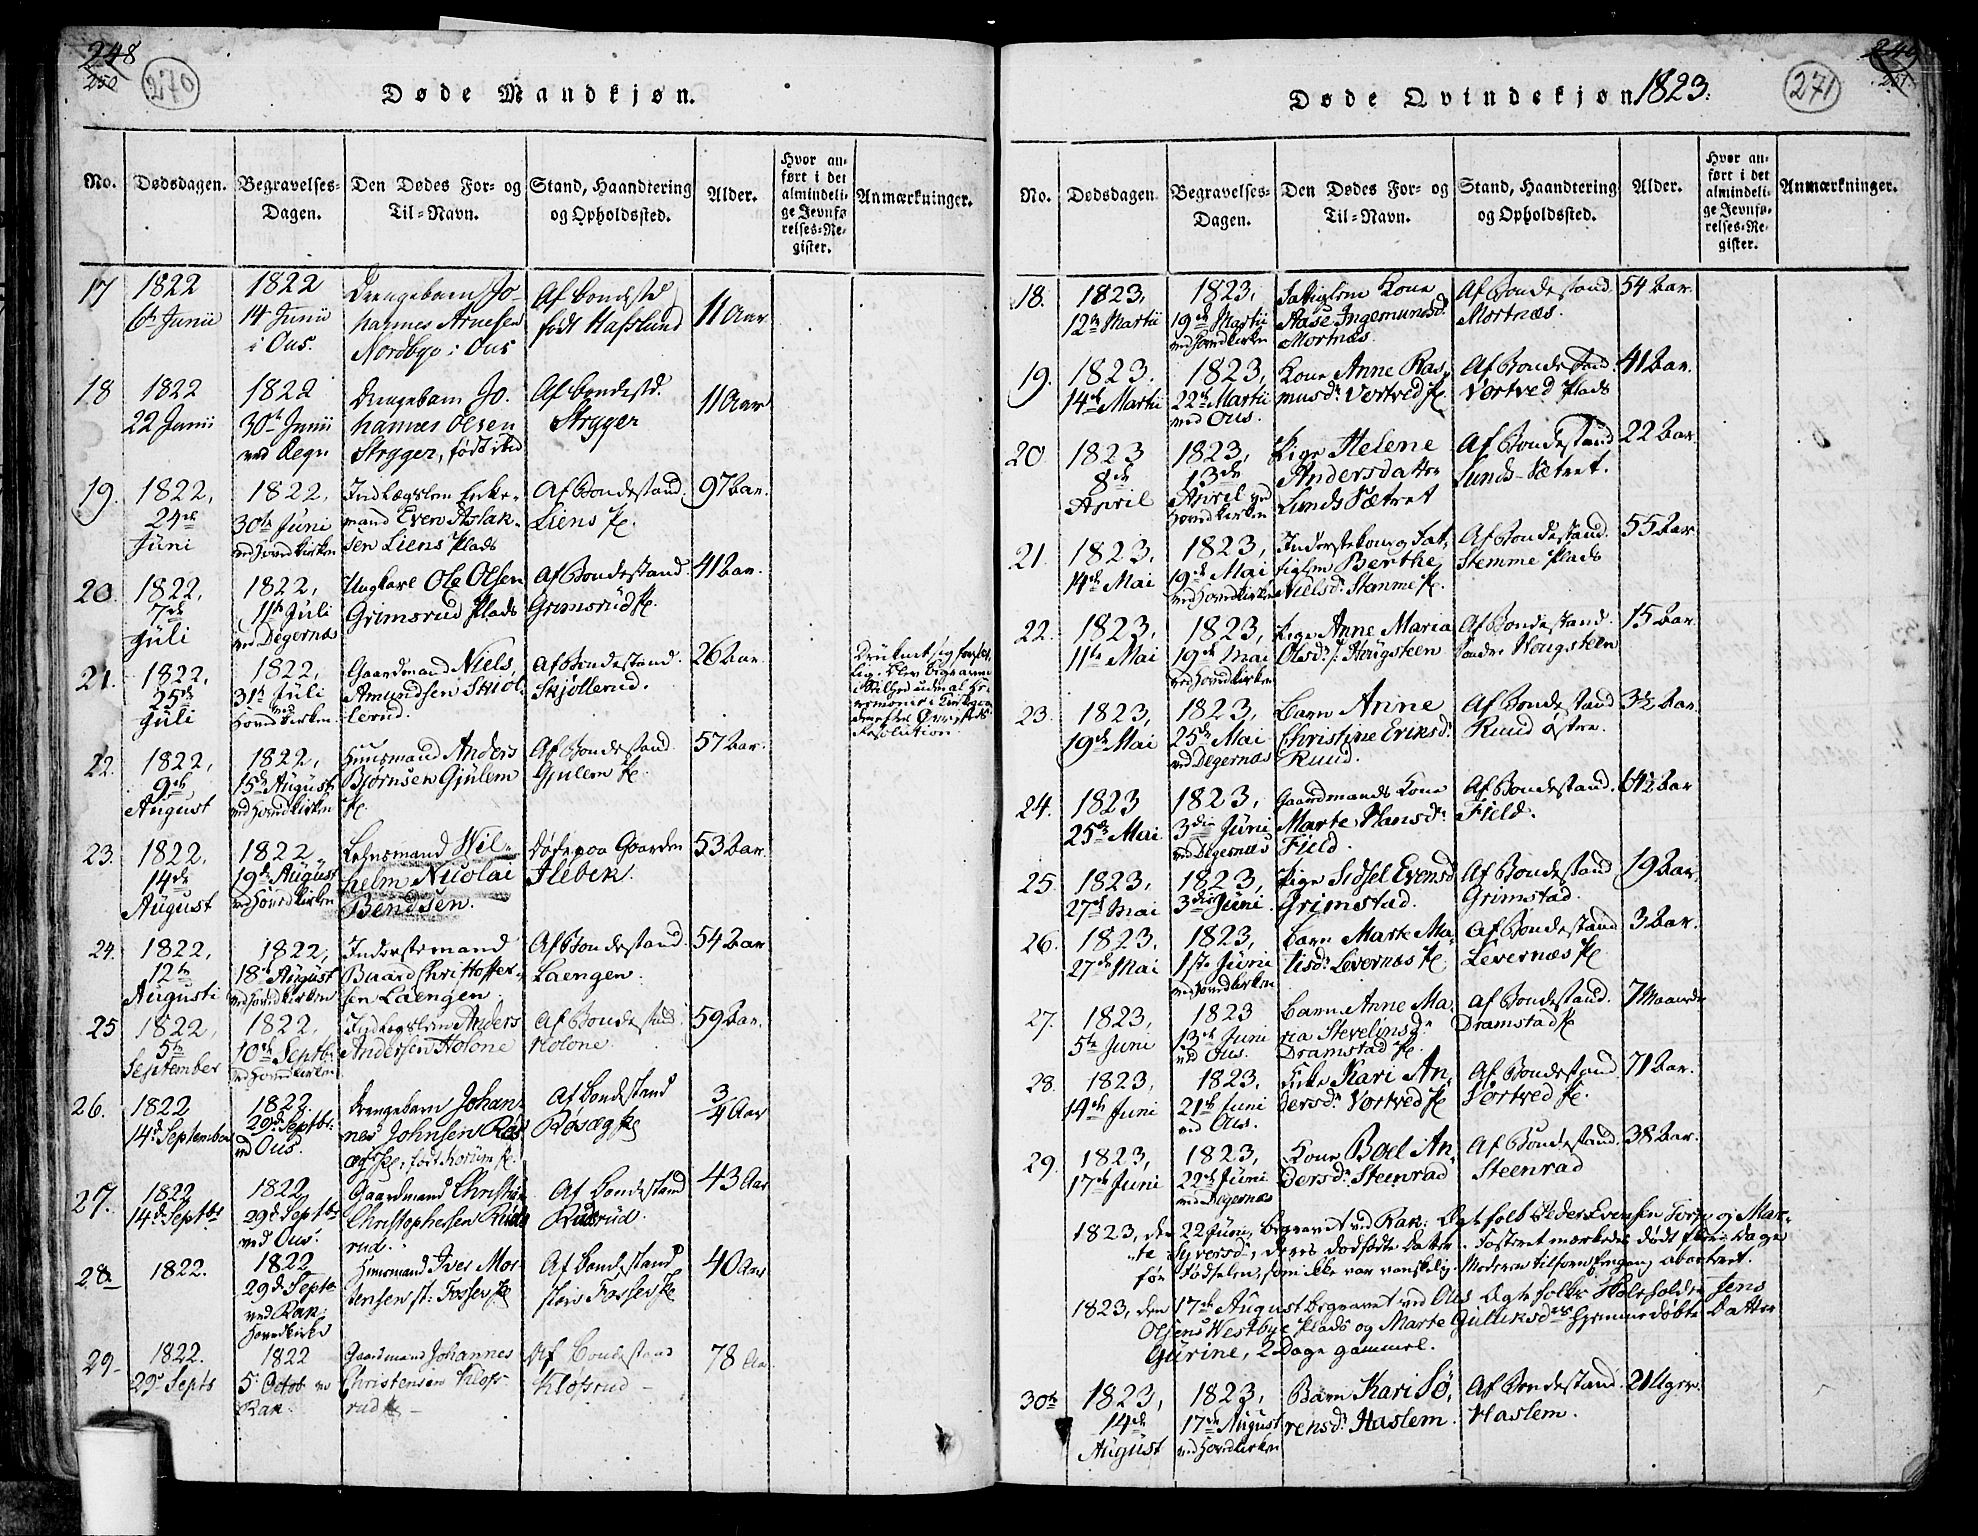 248
250
270
Døde Mandkjøn.
No.
Dødsdagen.
Begravelses-
Dagen.
Den Dødes For- og
Til-Navn.
Stand, Haandtering
og Opholdssted.
Alder.
Hvor an-
ført i det
almindeli-
ge Jevnfø
relses-Re-
gister.
Anmærkninger.
17
1822
6te Junii
1822
14 Junii
i Ous.
Drengebarn Jo-
hannes Arnesen
Nordbye i Ous
Af Bondestd
født Hafslund
11 Aar
18
1822
22 Junii
1822
30te Junii
ved Degn
Drengebarn Jo-
hannes Olsen
Strygger, født ibd
Af Bondestd.
Strygger
11 Aar
19.
1822,
24de
Juni
1822,
30te Juni
ved Hovedkirken
Indlægslem Enke-
mand Even Aslak-
sen Liens Plads
Af Bondestand.
Liens Pl.
97 Aar.
20.
1822,
7de
Juli
1822,
11te Juli
ved Degernæs
Ungkarl Ole Olsen
Grimsrud Plads
Af Bondestand.
Grimsrud Pl.
41 Aar.
21.
1822,
25de
Juli
1822,
31te Juli
ved
Hovedkirken
Gaardmand Niels
Amundsen Skiøl-
lerud.
Af Bondestand.
Skjøllerud.
26 Aar.
Resolution.
22.
1822,
9de
August
1822,
15de August
ved Hovedkirken
Huusmand Anders
Bjørnsen Gjulem
Pl.
Af Bondestand.
Gjulem Pl.
57 Aar.
23.
1822,
14de
August
1822
19de August
ved Hovedkirken
Lehnsmand Wil-
helm Nicolai
Bendsen.
Døde paa Gaarden
53 Aar.
24.
1822,
12te
Augusti
1822,
18de August
ved Hovedkirken
Inderstemand
Baard Christoffer-
sen Laengen
Af Bondestand.
Laengen.
54 Aar
25
1822,
5te
September
1822,
10de Septbr.
ved Hovedkirken
Indlegslem Anders
Andersen Holone
Af Bondestand
Holone.
59 Aar.
26.
1822
14d September
1822
29d Septbr.
ved Ous.
Drengebarn Johan-
nes Johnsen
Af Bondestand
3/4 Aar
27.
1822
14d Septbr
1822
29d Septbr
ved Ous.
Gaardmand Christian
Christophersen Ruds
rud.
Af Bondestand
Rudsrud.
43 Aar
28
1822.
1822
29d Septr
ved Rak:
Hovedkirke
Huusmand Iver Mor-
tensen st: Fosser Pl
Af Bondestand
store Fosser Pl
40 Aar
29
1822.
29d Septr
1822
5 Octob ved
Rak.
Gaardmand Johannes
Christensen Klofs-
rud
Af Bondestand
Klofsrud
78 Aar
249
251.
271
Døde Qvindekjøn 1823.
No.
Dødsdagen.
Begravelses-
Dagen.
Den Dødes For- og
Til-Navn.
Stand, Haandtering
og Opholdssted.
Alder.
Hvor an-
ført i det
almindeli-
ge Jevnfø-
relses-Re-
gister.
Anmærkninger.
18.
1823,
12te Martii
1823,
19de Martii
ved Hovedkirken
Fattiglem Kone
Aase Ingemundsd
Mortnæs.
Af Bondestand.
Mortnæs.
54 Aar.
19.
1823.
14de Martii
1823,
22de Martii
ved Ous.
Kone Anne Ras-
musdr Vortved Pl.
Af Bondestand.
Vortved Plads
41 Aar.
20
1823
8de
April
1823,
13de
April ved
Hovedkirken
Pige Helene
Andersdatter
Lunds Sætret
Af Bondestand
Lunds-Sætret.
22 Aar.
21.
1823.
14de Mai
1823,
19de Mai
ved Hovedkirken
Inderstekone og Fat-
tiglem Berthe
Nielsdr Stemme Pl.
Af Bondestand.
Stemme Plads
55 Aar
22.
1823,
11te Mai
1823,
19de Mai
ved Hovedkirken
Pige Anne Maria
Olsdr s: Hougsteen
Af Bondestand.
Søndre Hougsteen
15 Aar.
23.
1823,
19de Mai
1823,
25de Mai
ved Degernæs
Barn Anne
Christine Eriksdr
Ruud.
Af Bondestand
Ruud østre.
3½ Aar.
24.
1823
25de Mai
1823,
3die Juni
ved Degernæs
Gaardmands Kone
Marte Hansdr
Field.
Af Bondestand.
Field.
64½ Aar
25
1823,
27de Mai
1823,
3die Juni
Pige Sidsel Evensd
Grimstad.
Af Bondestand
Grimstad.
19 Aar.
26.
1823.
27de Mai
1823,
1ste Juni
ved Hovedkirken
Barn Marte Ma-
tisdr Levernæs Pl
Af Bondestand
Levernæs Pl
3 Aar.
27.
1823,
5te Juni
1823
13de Juni
ved Ous.
Barn Anne Ma-
ria Stevelinsdr
Dramstad Pl.
Af Bondestand.
Dramstad Pl
7 Maaneder
28.
1823,
14de Juni
1823,
21de Juni
ved Ous.
Enke Kari An-
dersdr Vortved Pl
Af Bondestand.
Vortved Pl.
71 Aar.
29.
1823,
17de Juni
1823,
22de Juni
ved Degernæs
Kone Boel An-
dersdr Steenrad
Af Bondestand.
Steenrad
38 Aar.
1823, den 22 Juni, begravet ved Rak: Ægtefolk Peder Evensen Torp og Mar-
te Syversdr, deres dødfødte Datter. Fosteret mærkedes dødt flere Dage
før Fødselen, som ikke var vanskelig. Moderen tilforn engang aborteret.
1823, den 17de August begravet ved Ous Ægtefolk Jens
Olsens Westbye Plads og Marte Gulliksdrs hjemmedøbte Datter
Gurine, 2 Dage gammel.
30te
1823,
14de
August
1823,
17de August
ved Hovedkirken
Barn Kari Sø-
rensdr Haslem.
Af Bondestand.
Haslem.
2 Uger.